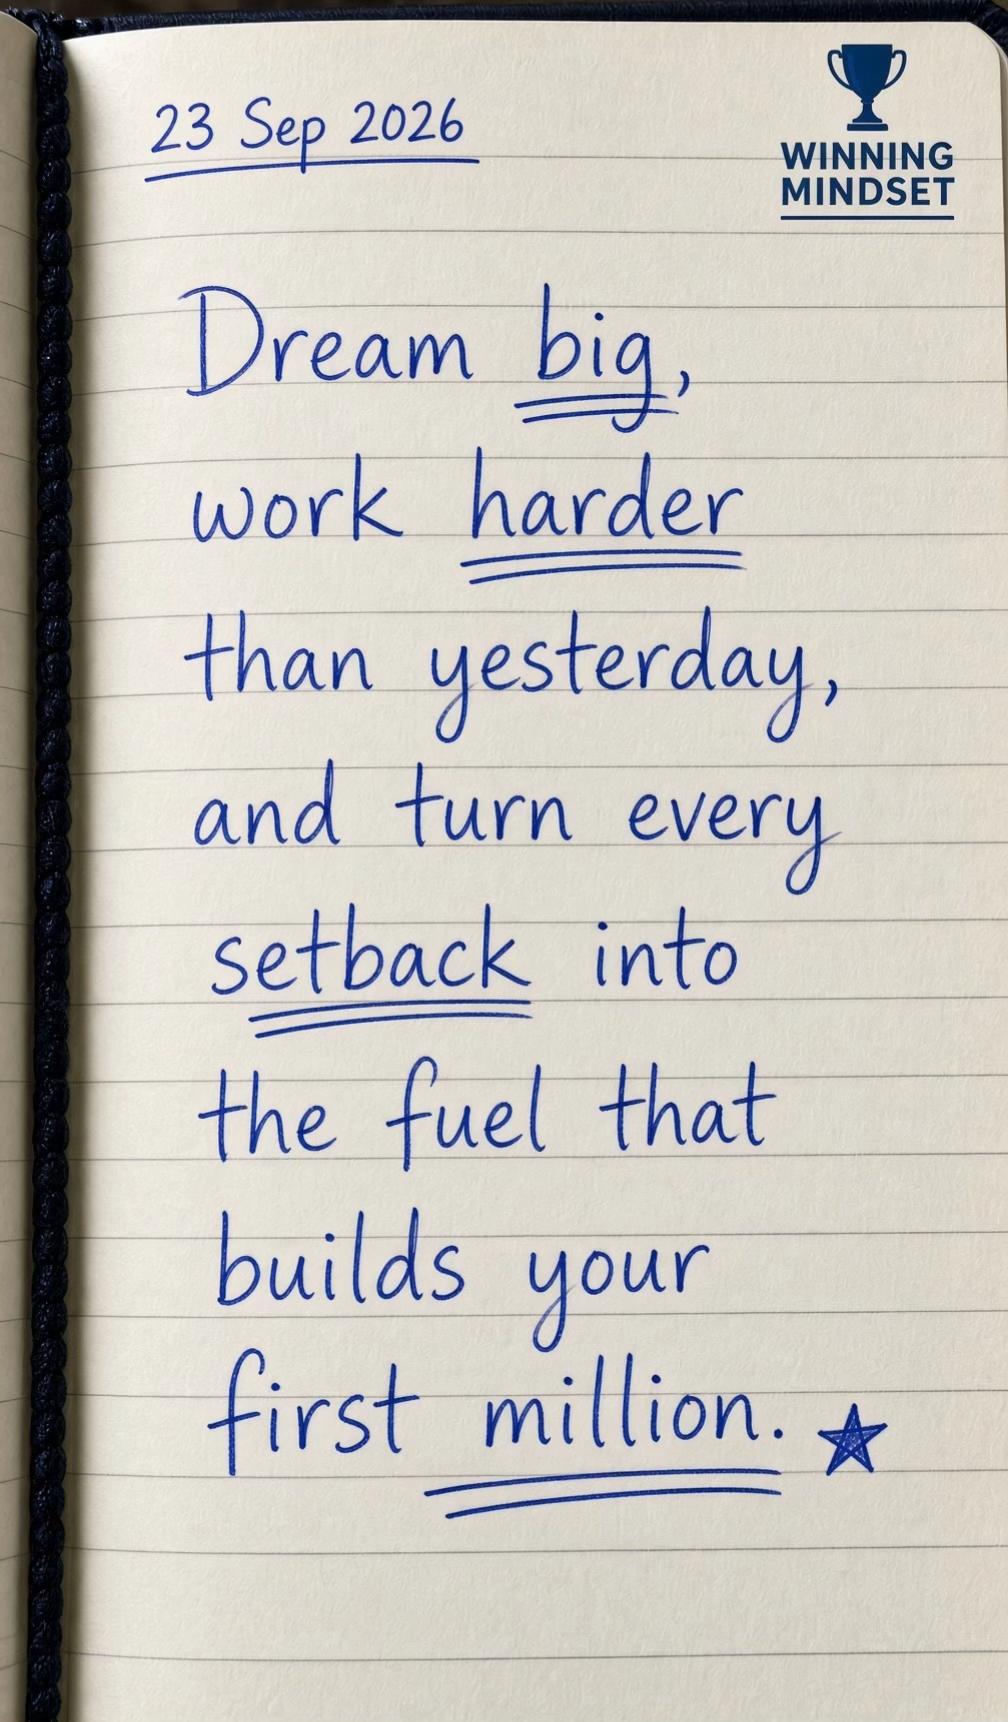 23 Sep 2026
WINNING
MINDSET
Dream big,
work harder
than yesterday,
and turn every
setback into
the fuel that
builds your
first million.